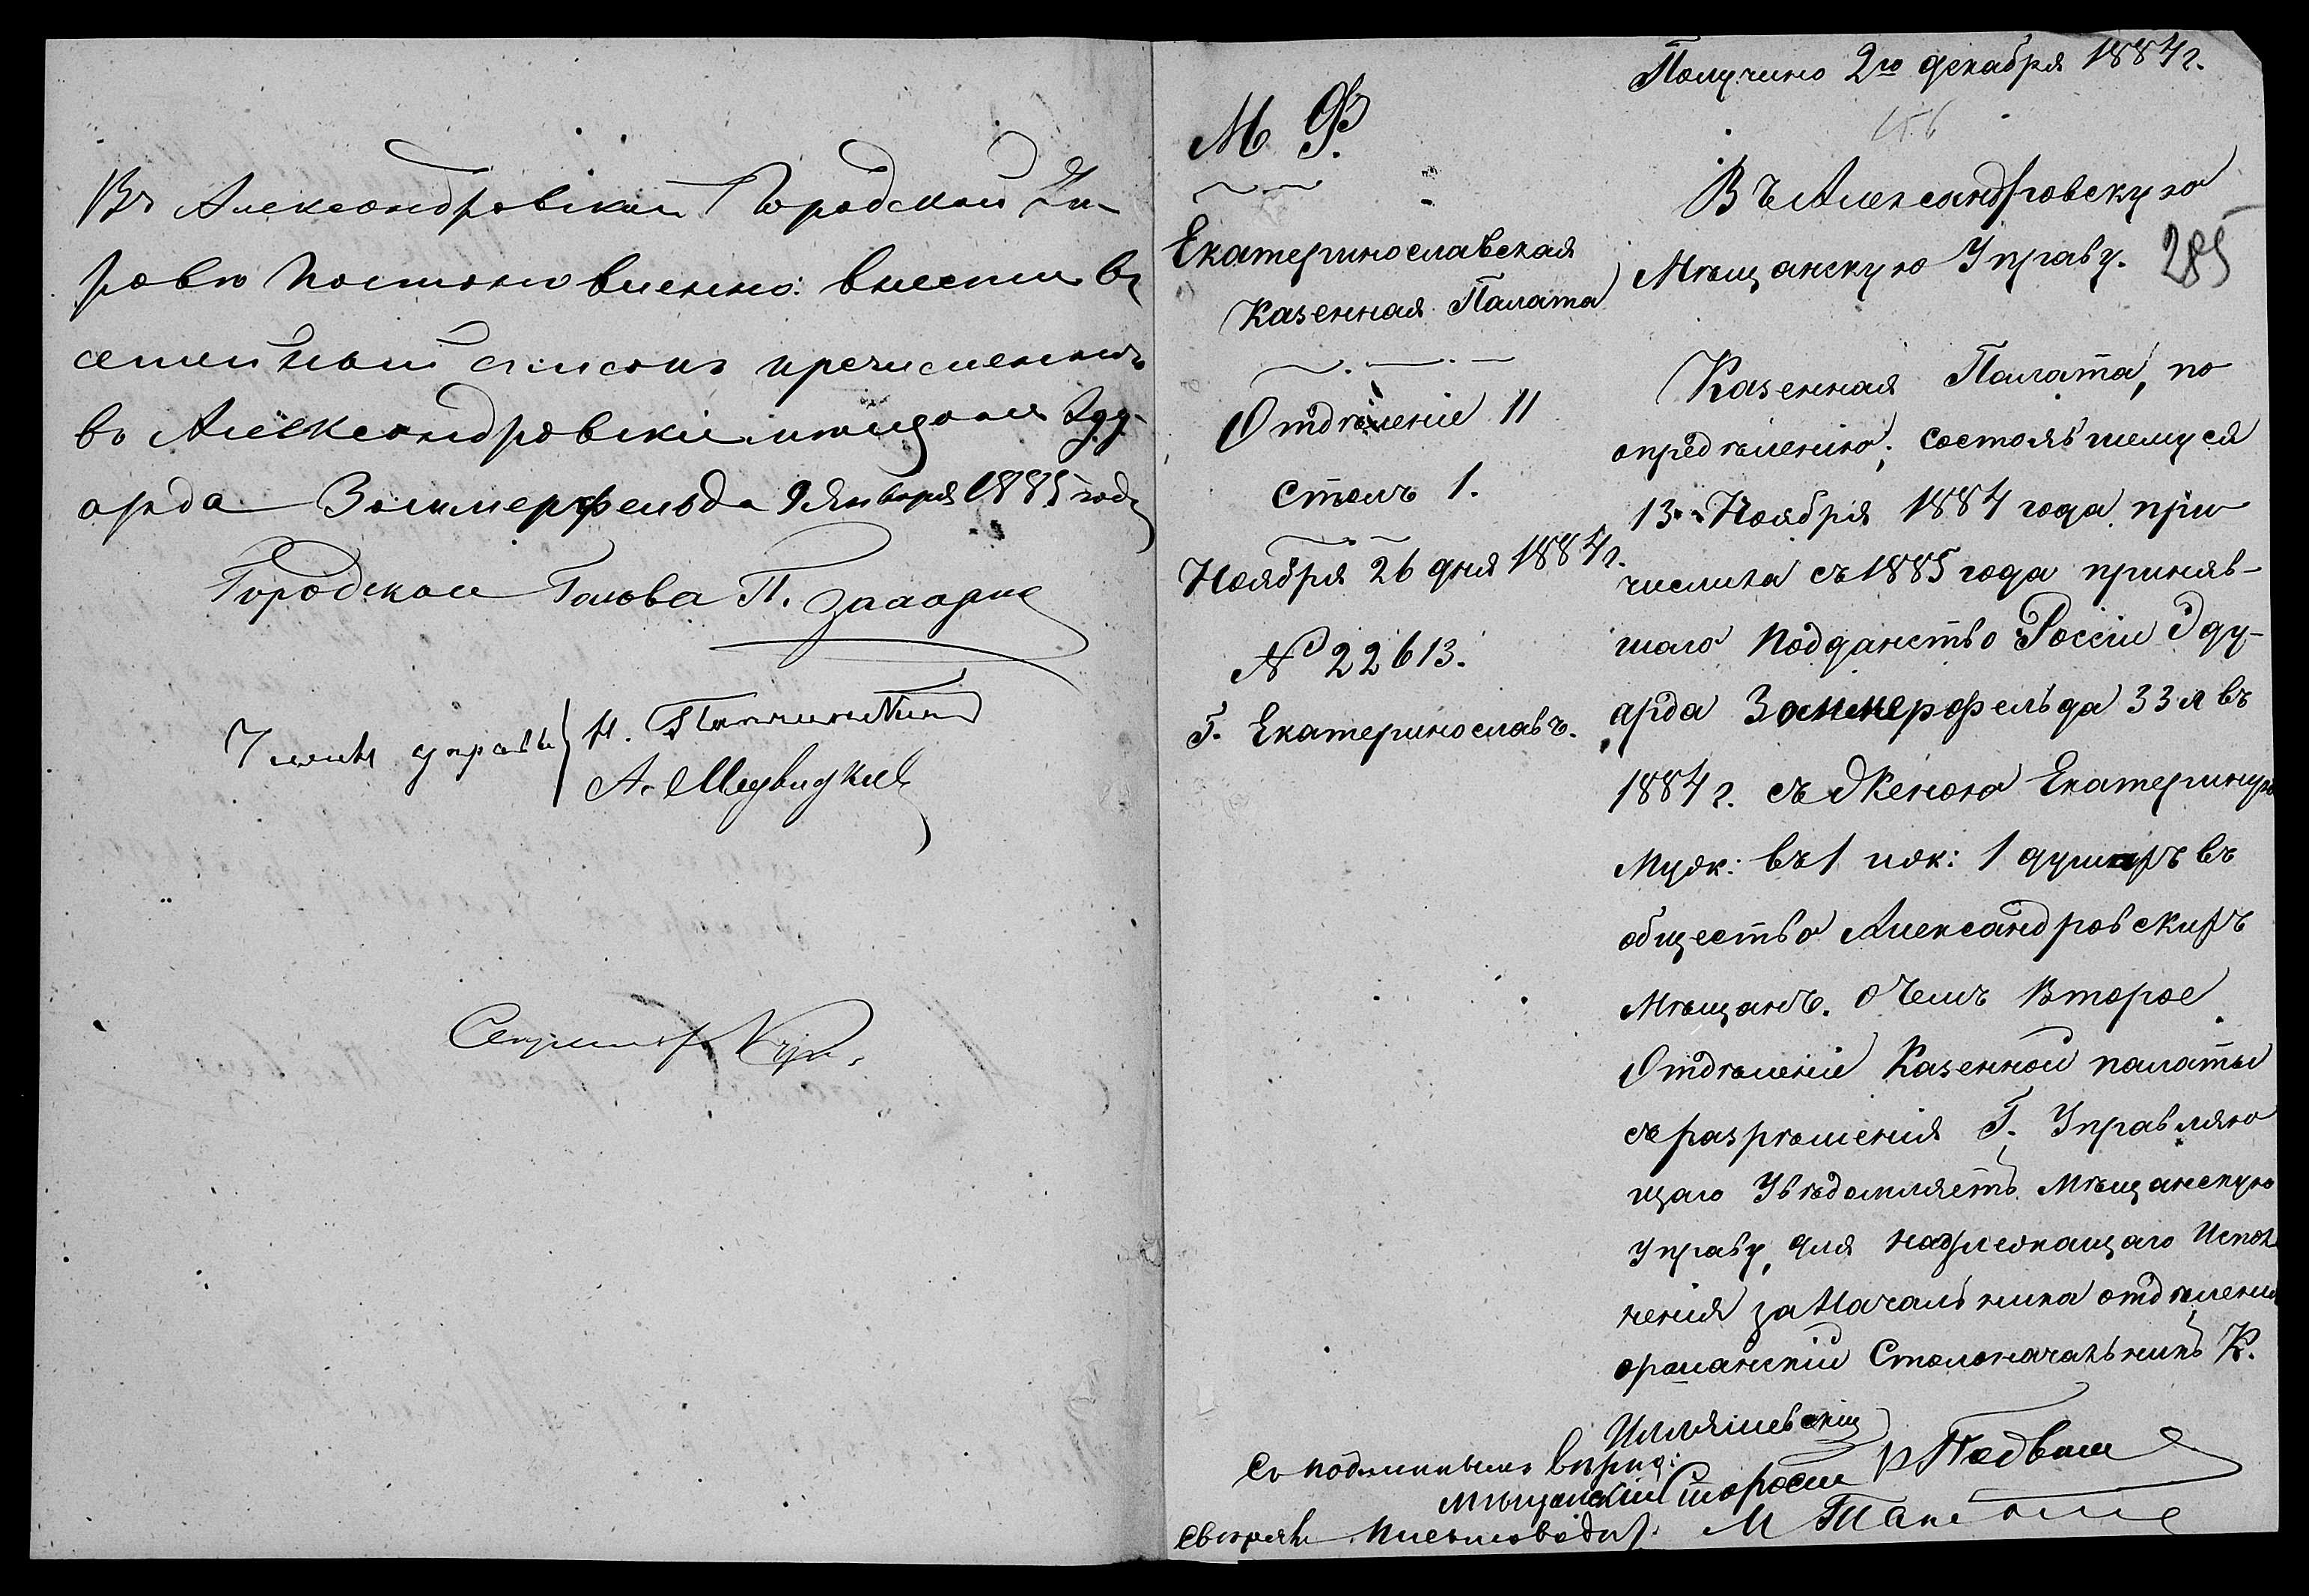 Въ Александровской Городской Уп-
равѣ постановленно: внести въ
семейный списокъ пречисленнаго
въ Александровскіе мещане Эду-
арда Зоммерфельда 9 Января 1885 года
Городской Голова П.
Члены управы Н.
А. Медвидкив
Секретарь
Получино 2го декабря 1884 г.
М Ф.
Екатеринославская
Казенная Палата
Отдѣленіе II
Столъ 1.
Ноября 26 дня 1884 г.
№ 22613.
Г. Екатеринославъ.
Въ Александровскую
Мѣщанскую Управу.
285
Казенная Палата, по
опредѣленію, состоявшемуся
13 Ноября 1884 года при
числила съ 1885 года приняв-
шаго подданство Россіи Эду-
арда Зоммерфельда 33 л въ
1884 г. съ Женою Екатериную
Муж: въ 1 нок: 1 душахъ въ
общество Александровскихъ
Мѣщанъ. О чемъ Второе
Отдѣленіе Казенной палаты
съ разрѣшенія Г. Управляю
щаго Увѣдомляетъ Мѣщанскую
Управу, для надлежащаго Испол
ненія за Начальника отдѣленія
Столоначальникъ К.
Илляшевскій
Съ подлиннымъ вѣрно:
Мѣщанскій Староста
Свѣрялъ Писмоводит.